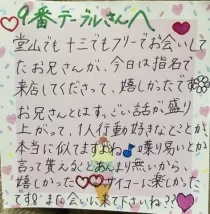 9番テーブルさんへ
堂山でも十三でもフリーでお会いし
たお兄さんが、今日は指名で
来店してくださって、嬉しかったです
お兄さんとはすっごい話が盛り
上がって、1人行動好きなとことか、
本当に似てますよね♪喋り易いとか
言って貰えることあんまり無いから、
嬉しかった♡♡サイコーに楽しかった
です!! また会いに来て下さいね??♡